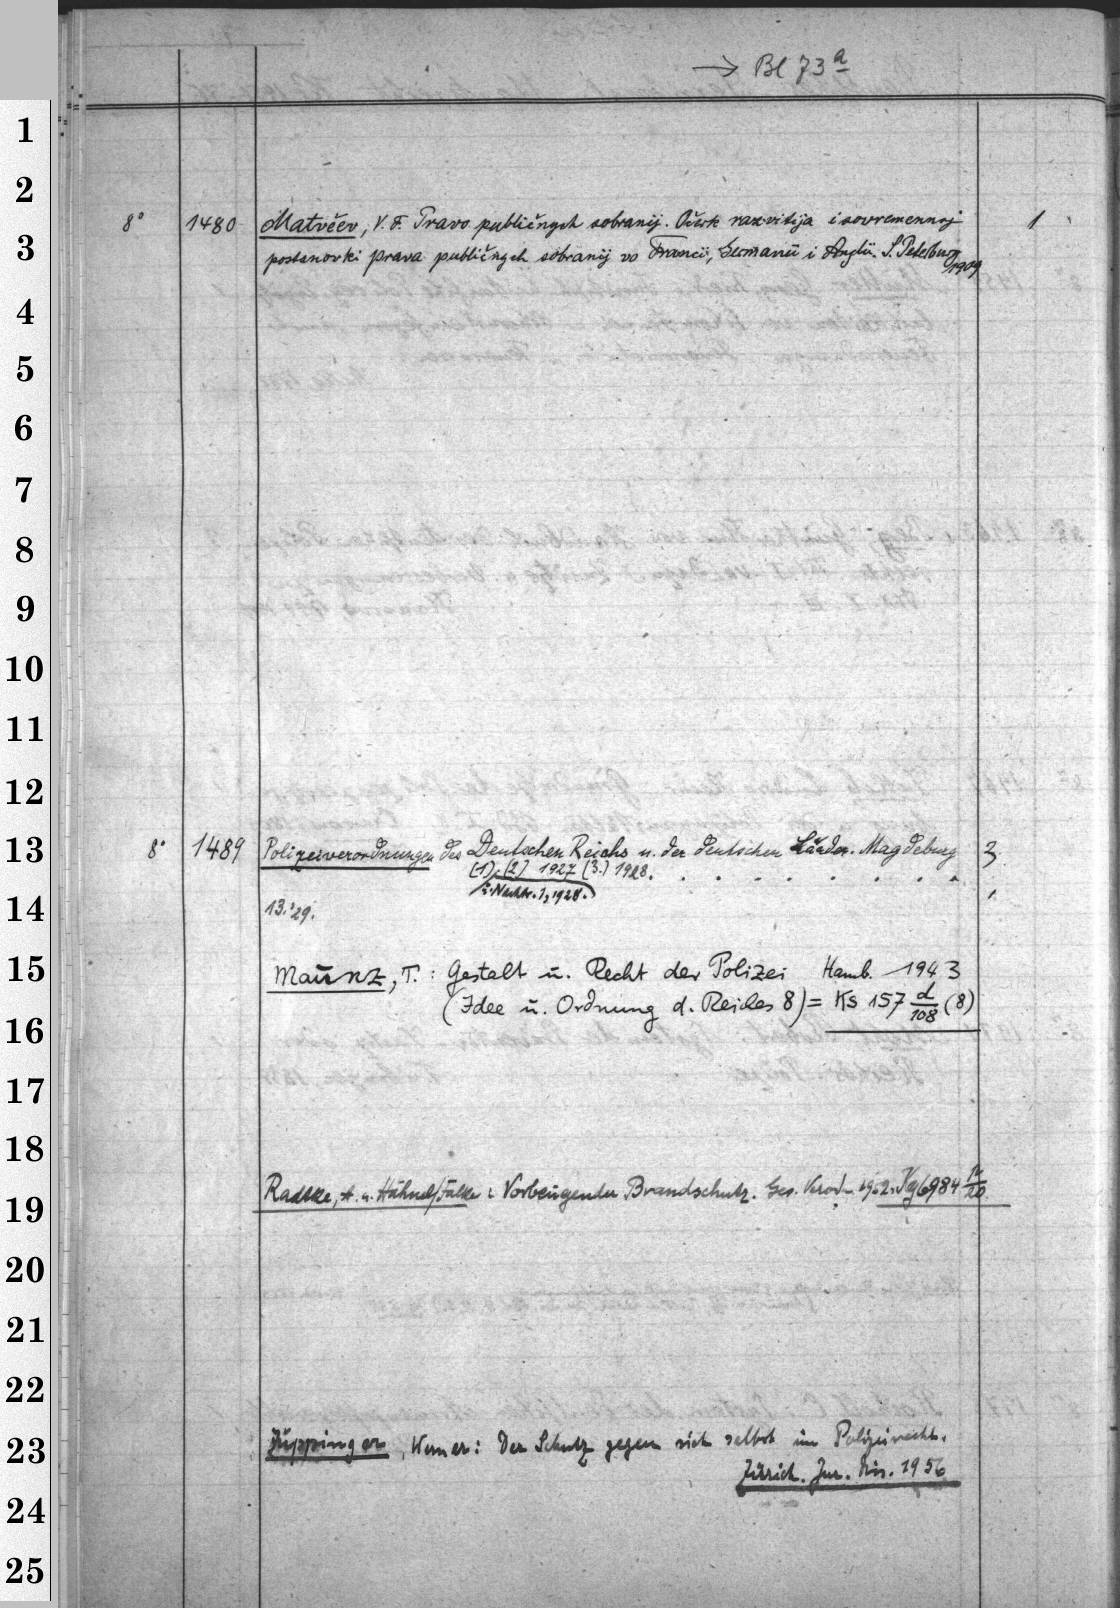 → Bl 73a
8° 1480 Matvěev, V. F. Pravo publičnych sobranij. Očerk razvitija i sovremennoj 1
postanovki prava publičnych sobranij vo Francii, Germanii i Anglii. S. Petersburg
1909
8° 1489 Polizeiverordnungen des Deutschen Reichs u. der deutschen Länder. Magdeburg 3
(1). (2) 1927 (3.) 1928. . . . . . . . .
: Nachtr. 1, 1928.
13.'29.
Maunz, T. : Gestalt u. Recht der Polizei Hamb. 1943
(Idee u. Ordnung d. Reiches 8) = Ks 157 d/108 (8)
Radtke, A. u. Hähnel/Falke : Vorbeugender Brandschutz. Ges. Verod. 1952. Kg 6984
, Werner: Der Schutz gegen sich selbst im Polizeirecht.
Zürich. Jur. Dis. 1956
1
2
3
4
5
6
7
8
9
10
11
12
13
14
15
16
17
18
19
20
21
22
23
24
25